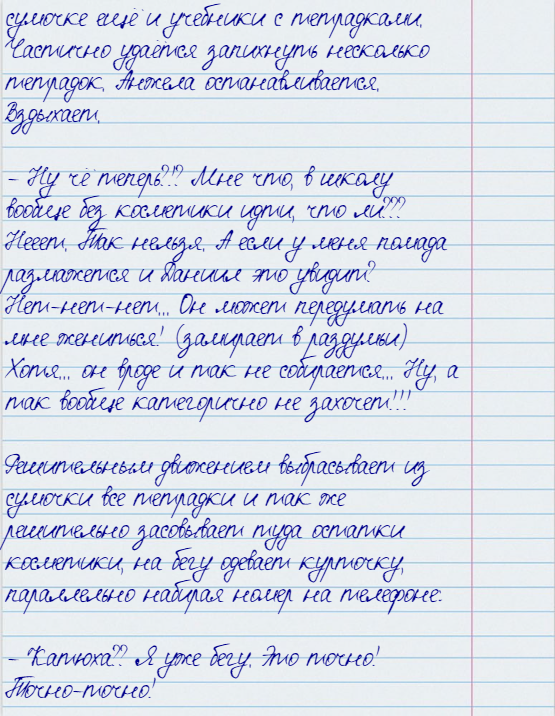 сумочке ещё и учебники с тетрадками.
Частично удаётся запихнуть несколько
тетрадок. Анжела останавливается.
Вздыхает.
- Ну чё теперь?!? Мне что, в школу
вообще без косметики идти, что ли???
Нееет. Так нельзя. А если у меня помада
размажется и Даниил это увидит?
Нет-нет-нет... Он может передумать на
мне жениться! (замирает в раздумьи)
Хотя... он вроде и так не собирается... Ну, а
так вообще категорично не захочет!!!
Решительным движением выбрасывает из
сумочки все тетрадки и так же
решительно засовывает туда остатки
косметики, на бегу одевает курточку,
параллельно набирая номер на телефоне:
- Катюха?? Я уже бегу. Это точно!
Точно-точно!